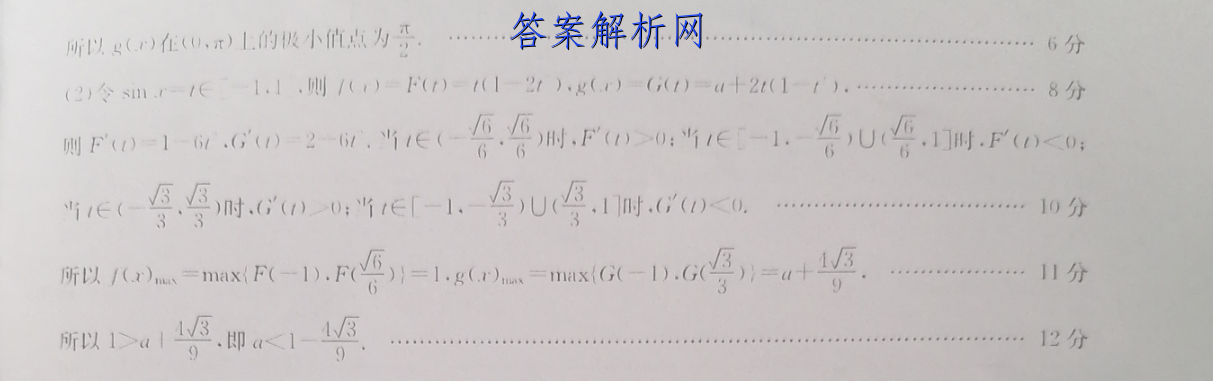 答案解析网
所以 g(x)在(0,π)上的极小值点为 π/2. …… 6 分
(2)令 sin x=t∈[-1,1],则 f(x)=F(t)=t(1-2t²),g(x)=G(t)=a+2t(1-t²). …… 8 分
则 F′(t)=1-6t²,G′(t)=2-6t². 当 t∈(-√6/6,√6/6)时,F′(t)>0;当 t∈[-1,-√6/6)∪(√6/6,1]时,F′(t)<0;
当 t∈(-√3/3,√3/3)时,G′(t)>0;当 t∈[-1,-√3/3)∪(√3/3,1]时,G′(t)<0. …… 10 分
所以 f(x)max=max{F(-1),F(√6/6)}=1,g(x)max=max{G(-1),G(√3/3)}=a+4√3/9. …… 11 分
所以 1>a+4√3/9,即 a<1-4√3/9. …… 12 分